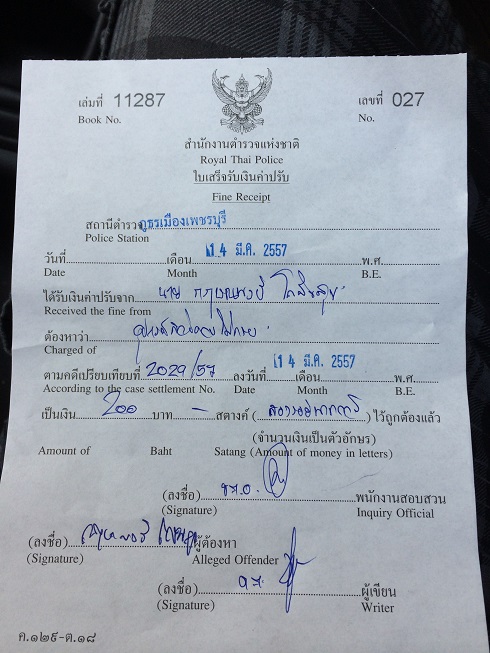 เล่มที่ 11287 เลขที่ 027
Book No. No.
สำนักงานตำรวจแห่งชาติ
Royal Thai Police
ใบเสร็จรับเงินค่าปรับ
Fine Receipt
สถานีตำรวจ ภูธรเมืองเพชรบุรี
Police Station
วันที่ เดือน 14 มี.ค. 2557 พ.ศ.
Date Month B.E.
ได้รับเงินค่าปรับจาก นาย
Received the fine from
ต้องหาว่า
Charged of
ตามคดีเปรียบเทียบที่ 2029/57 ลงวันที่ เดือน 14 มี.ค. 2557 พ.ศ.
According to the case settlement No. Date Month B.E.
เป็นเงิน 200 บาท - สตางค์ ( ) ไว้ถูกต้องแล้ว
(จำนวนเงินเป็นตัวอักษร)
Amount of Baht Satang (Amount of money in letters)
(ลงชื่อ) พนักงานสอบสวน
(Signature) Inquiry Official
(ลงชื่อ) ผู้ต้องหา
(Signature) Alleged Offender
(ลงชื่อ) ผู้เขียน
(Signature) Writer
ค.๑๒๙-ต.๑๘